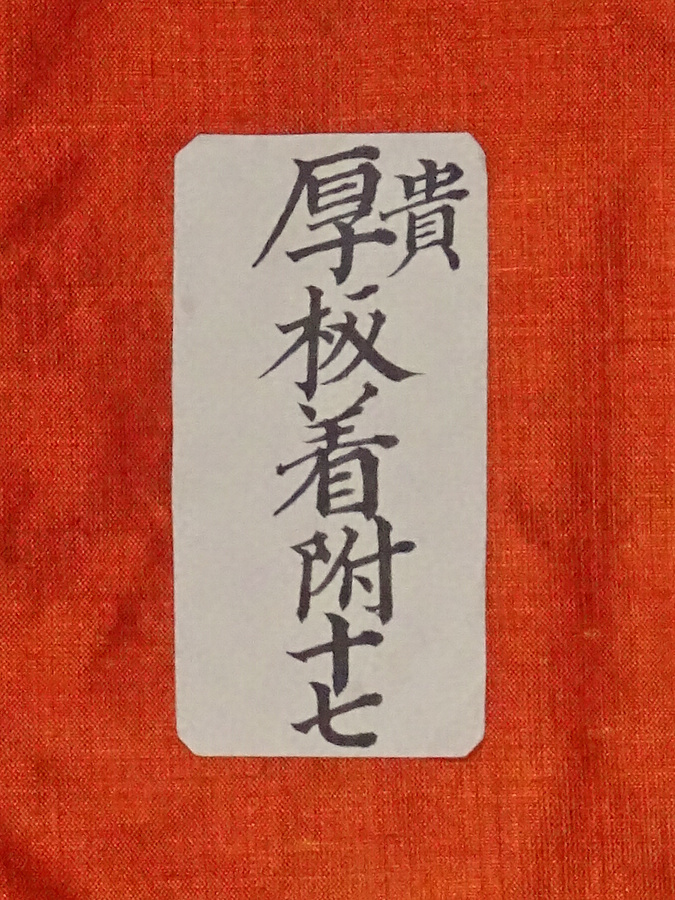 貴
厚板着附十七